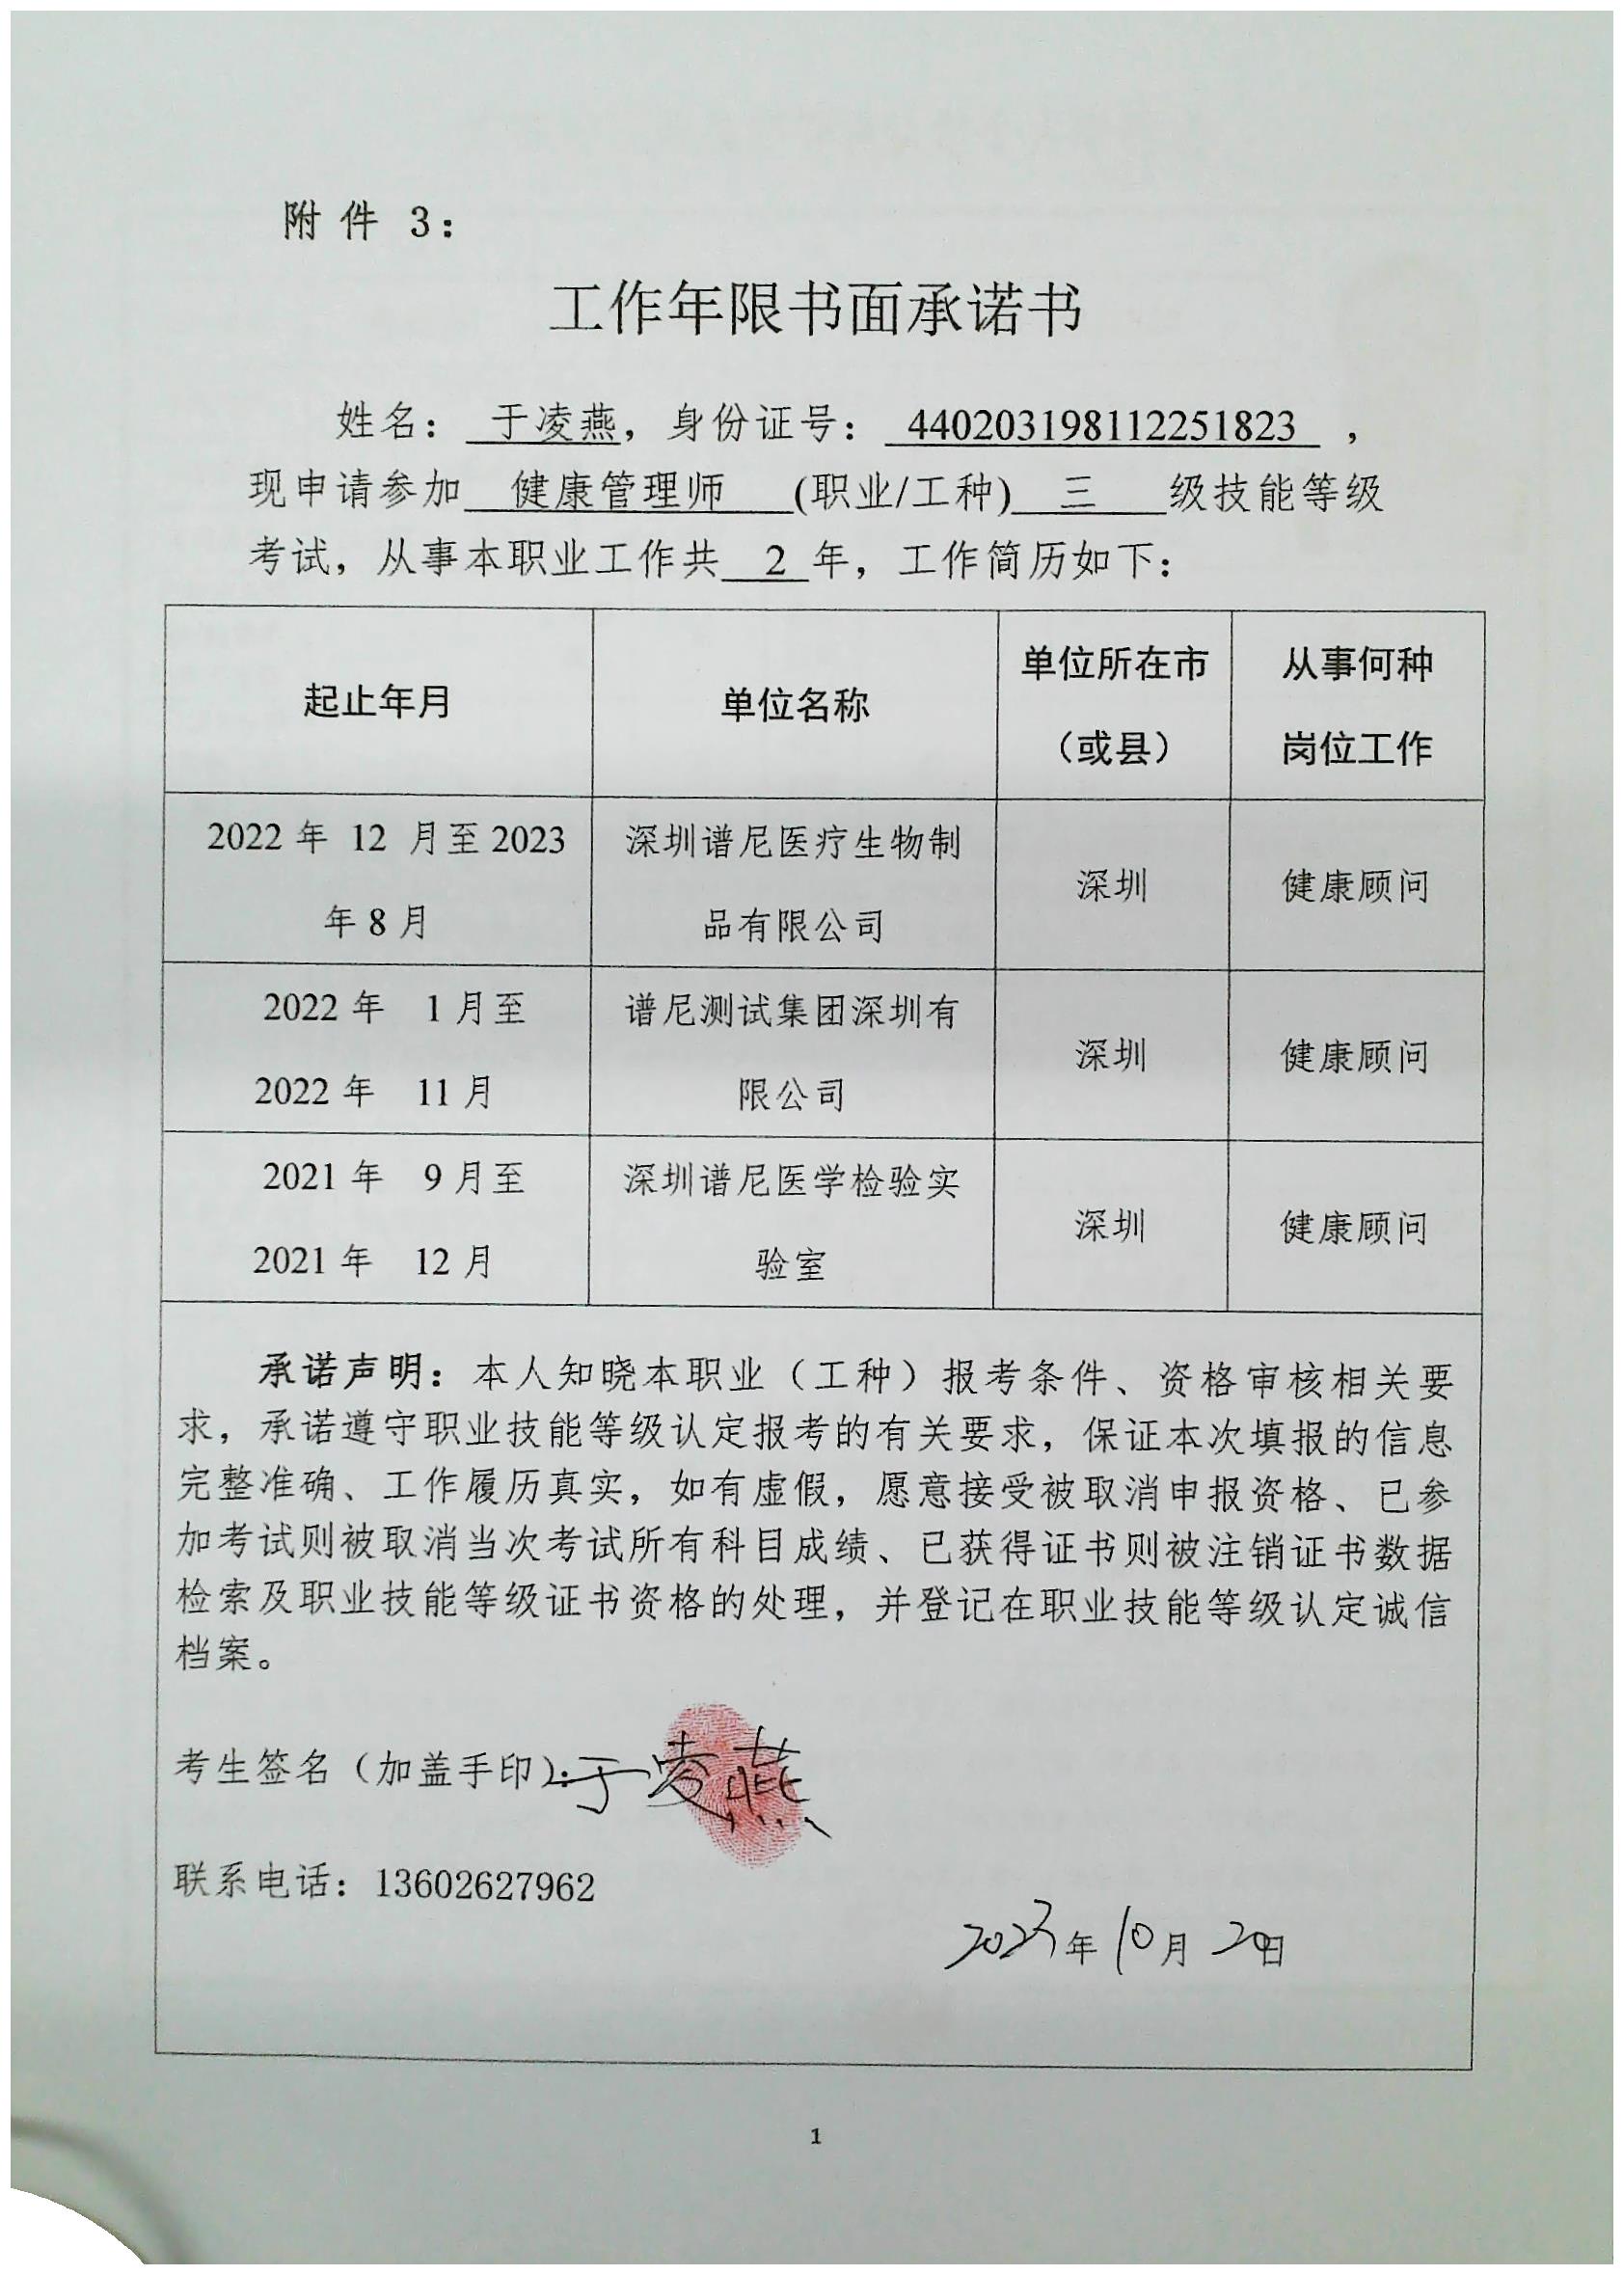 附件 3：
工作年限书面承诺书
姓名： 于凌燕，身份证号： 440203198112251823 ，
现申请参加 健康管理师 (职业/工种) 三 级技能等级
考试，从事本职业工作共 2 年，工作简历如下：
起止年月 单位名称 单位所在市（或县） 从事何种岗位工作
2022 年 12 月至 2023 深圳谱尼医疗生物制 深圳 健康顾问
年 8 月 品有限公司
2022 年 1 月至 谱尼测试集团深圳有 深圳 健康顾问
2022 年 11 月 限公司
2021 年 9 月至 深圳谱尼医学检验实 深圳 健康顾问
2021 年 12 月 验室
承诺声明：本人知晓本职业（工种）报考条件、资格审核相关要
求，承诺遵守职业技能等级认定报考的有关要求，保证本次填报的信息
完整准确、工作履历真实，如有虚假，愿意接受被取消申报资格、已参
加考试则被取消当次考试所有科目成绩、已获得证书则被注销证书数据
检索及职业技能等级证书资格的处理，并登记在职业技能等级认定诚信
档案。
考生签名（加盖手印）：于凌燕
联系电话：13602627962
2023年10月20日
1